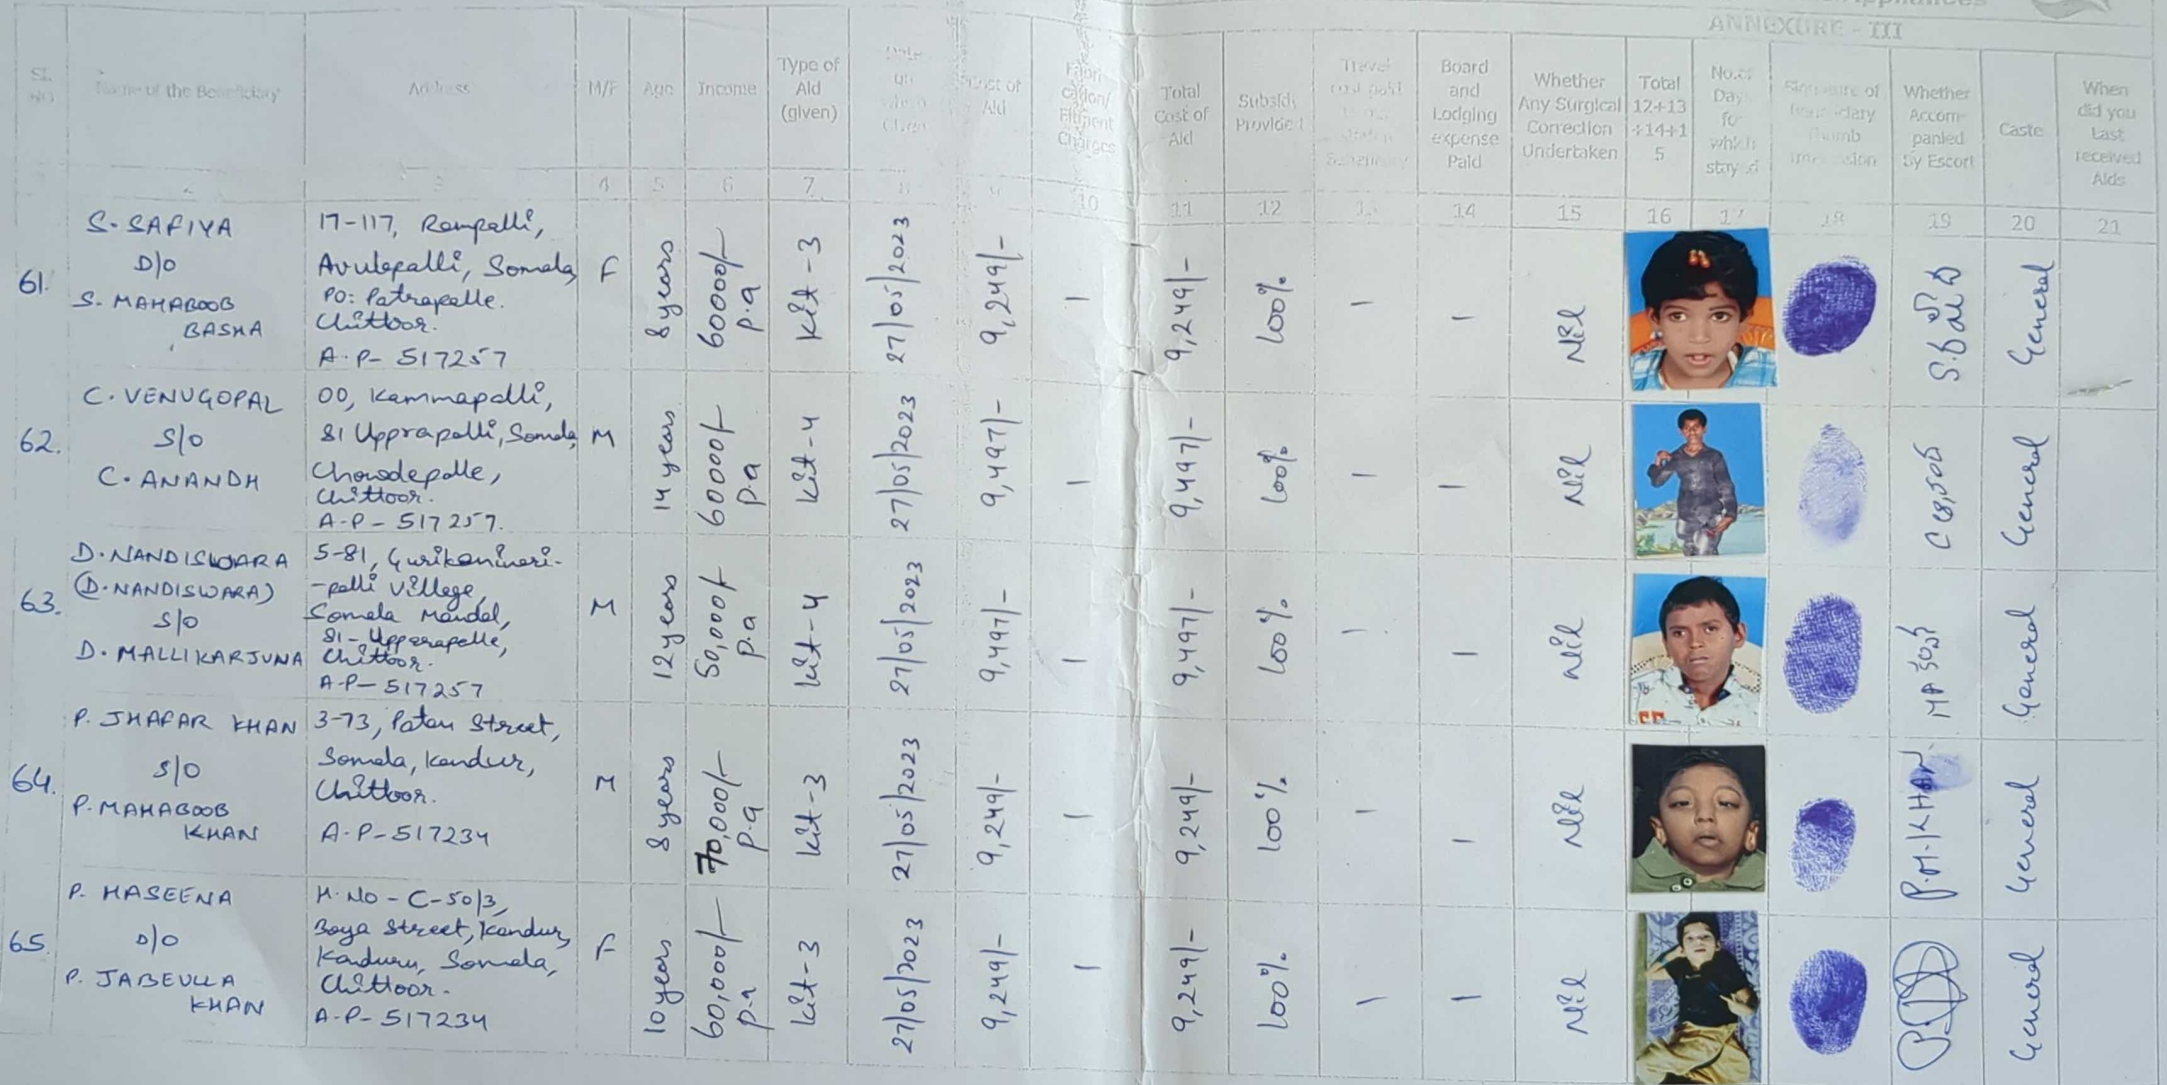 ANNEXURE - III
SL. NO
Name of the Beneficiary
Address
M/F
Age
Income
Type of Aid (given)
Date on which Given
Cost of Aid
Fabrication/ Fitment Charges
Total Cost of Aid
Subsidy Provided
Travel cost paid
Board and Lodging expense Paid
Whether Any Surgical Correction Undertaken
Total 12+13+14+15
No.of Days for which stayed
Whether Accompanied by Escort
Caste
When did you Last received Aids
4 5 6 7 10 11 12 14 15 16 17 18 19 20 21
61.
S. SAFIYA
D/O
S. MAHABOOB
BASHA
17-117, Rampalli,
Avulapalli, Somala,
PO: Patrapalle.
Chittoor.
A.P- 517257
F
8 years
60000/-
p.a
Kit-3
27/05/2023
9,249/-
9,249/-
100%
Nil
General
62.
C. VENUGOPAL
S/O
C. ANANDH
00, Kammapalli,
81 Upprapalli, Somala,
Chowdepalle,
Chittoor.
A-P- 517257.
M
14 years
60000/-
p.a
Kit-4
27/05/2023
9,497/-
9,497/-
100%
Nil
General
63.
D. NANDISWARA
(D. NANDISWARA)
S/O
D. MALLIKARJUNA
5-81, Gurikaniveri-
-palli Village,
Somala Mandal,
81- Upparapalle,
Chittoor.
A-P- 517257
M
12 years
50,000/-
p.a
Kit-4
27/05/2023
9,497/-
9,497/-
100%
Nil
General
64.
P. JHAFAR KHAN
S/O
P. MAHABOOB
KHAN
3-73, Patan Street,
Somala, Kandur,
Chittoor.
A.P-517234
M
8 years
70,000/-
p.a
Kit-3
27/05/2023
9,249/-
9,249/-
100%
Nil
P.M.KHAN
General
65.
P. HASEENA
D/O
P. JABEULLA
KHAN
H.No - C-50/3,
Boya Street, Kandur,
Kanduru, Somala,
Chittoor.
A-P- 517234
F
10 years
60,000/-
p.a
Kit-3
27/05/2023
9,249/-
9,249/-
100%
Nil
General